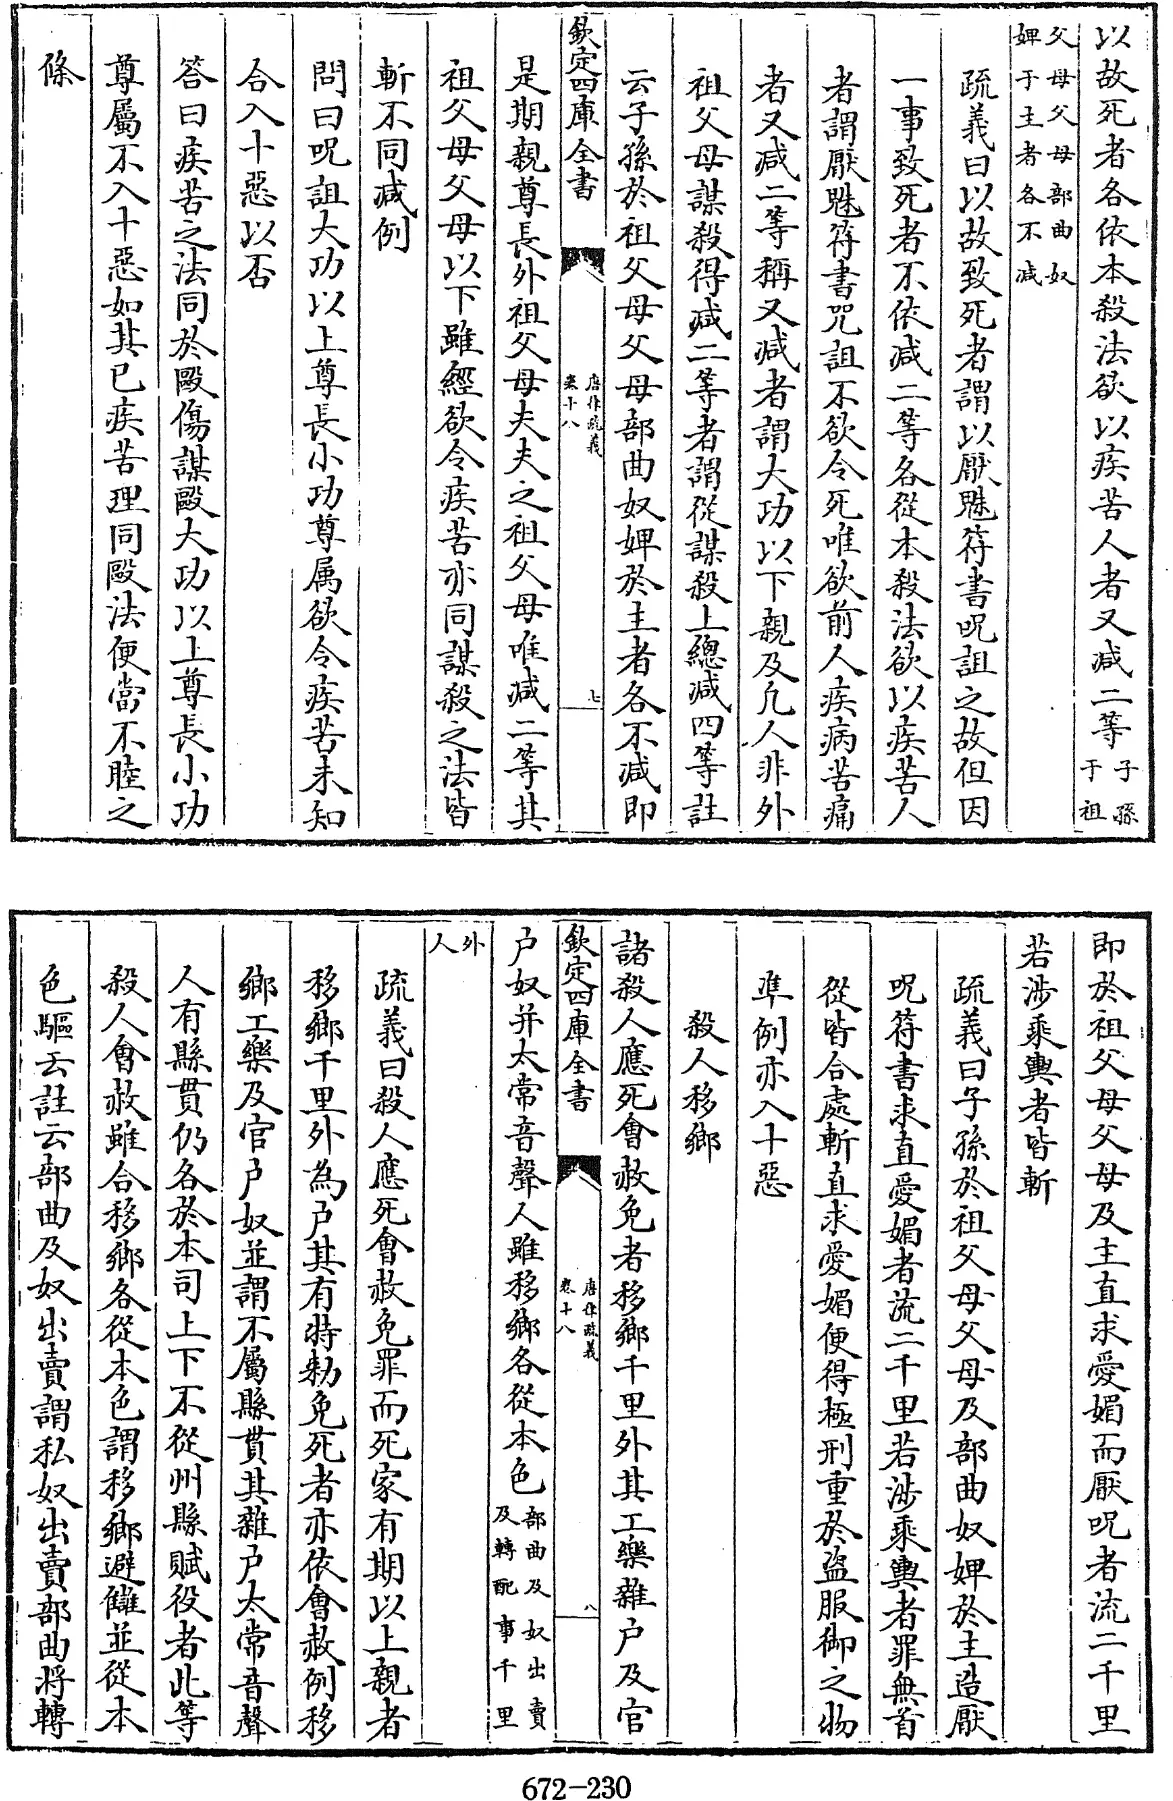 以故死者各依本殺法欲以疾苦人者又減二等子孫于祖
父母父母部曲奴婢于主者各不減
疏義曰以故致死者謂以厭魅符書呪詛之故但因
一事致死者不依減二等各從本殺法欲以疾苦人
者謂厭魅符書咒詛不欲令死唯欲前人疾病苦痛
者又減二等稱又減者謂大功以下親及凡人非外
祖父母謀殺得減二等者謂從謀殺上總減四等註
云子孫於祖父母父母部曲奴婢於主者各不減即
欽定四庫全書 唐律疏義卷十八 七
是期親尊長外祖父母夫夫之祖父母唯減二等其
祖父母父母以下雖經欲令疾苦亦同謀殺之法皆
斬不同減例
問曰呪詛大功以上尊長小功尊属欲令疾苦未知
合入十惡以否
答曰疾苦之法同於毆傷謀毆大功以上尊長小功
尊屬不入十惡如其已疾苦理同毆法便當不睦之
條
即於祖父母父母及主直求愛媚而厭呪者流二千里
若涉乘輿者皆斬
疏義曰子孫於祖父母父母及部曲奴婢於主造厭
呪符書求直愛媚者流二千里若涉乘輿者罪無首
從皆合處斬直求愛媚便得極刑重於盜服御之物
準例亦入十惡
殺人移鄉
諸殺人應死會赦免者移鄉千里外其工樂雜户及官
欽定四庫全書 唐律疏義卷十八 八
户奴并太常音聲人雖移鄉各從本色部曲及奴出賣及轉配事千里
外人
疏義曰殺人應死會赦免罪而死家有期以上親者
移鄉千里外為户其有特勅免死者亦依會赦例移
鄉工樂及官户奴並謂不屬縣貫其雜户太常音聲
人有縣貫仍各於本司上下不從州縣賦役者此等
殺人會赦雖合移鄉各從本色謂移鄉避讎並從本
色驅云註云部曲及奴出賣謂私奴出賣部曲将轉
672-230